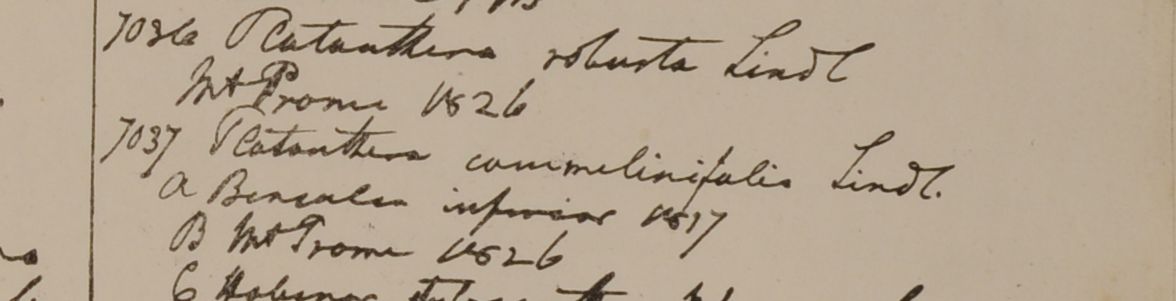 7036 Platanthera robusta Lindl
Mt Prome 1826
7037 Platanthera commelinifolia Lindl.
a Bengalea inferior 1817
B Mt Prome 1826
C Habenar